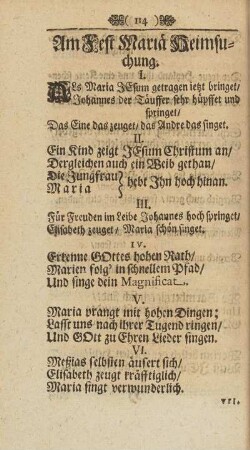 ( 114 )
Am Fest Mariä Heimsu-
chung.
I.
Als Maria JEsum getragen jetzt bringet/
Johannes der Täuffer sehr hüpffet und
springet/
Das Eine das zeuget/ das Andre das singet.
II.
Ein Kind zeigt JEsum Christum an/
Dergleichen auch ein Weib gethan/
Die Jungfrau
Maria } hebt Ihn hoch hinan.
III.
Für Freuden im Leibe Johannes hoch springet/
Elisabeth zeuget/ Maria schön singet.
IV.
Erkenne GOttes hohen Rath/
Marien folg' in schnellem Pfad/
Und singe dein Magnificat.
V.
Maria prangt mit hohen Dingen:
Lasst uns nach ihrer Tugend ringen/
Und GOtt zu Ehren Lieder singen.
VI.
Meßias selbsten äusert sich/
Elisabeth zeugt kräfftiglich/
Maria singt verwunderlich.
VII.